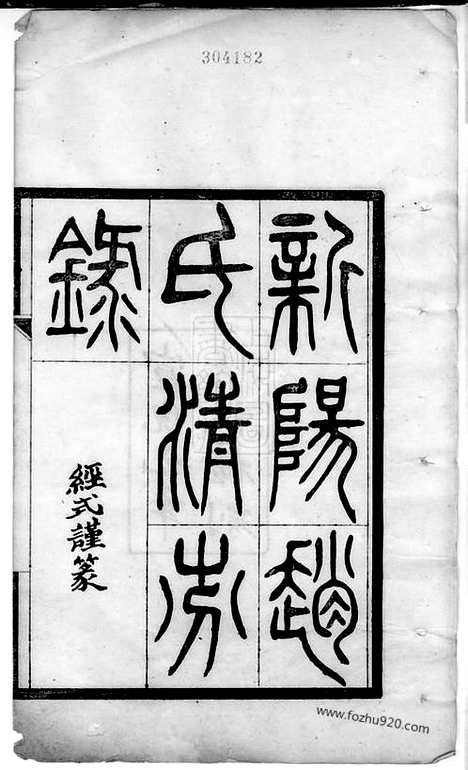 304182
新陽趙
氏清芬
錄
經式謹篆
www.fozhu920.com